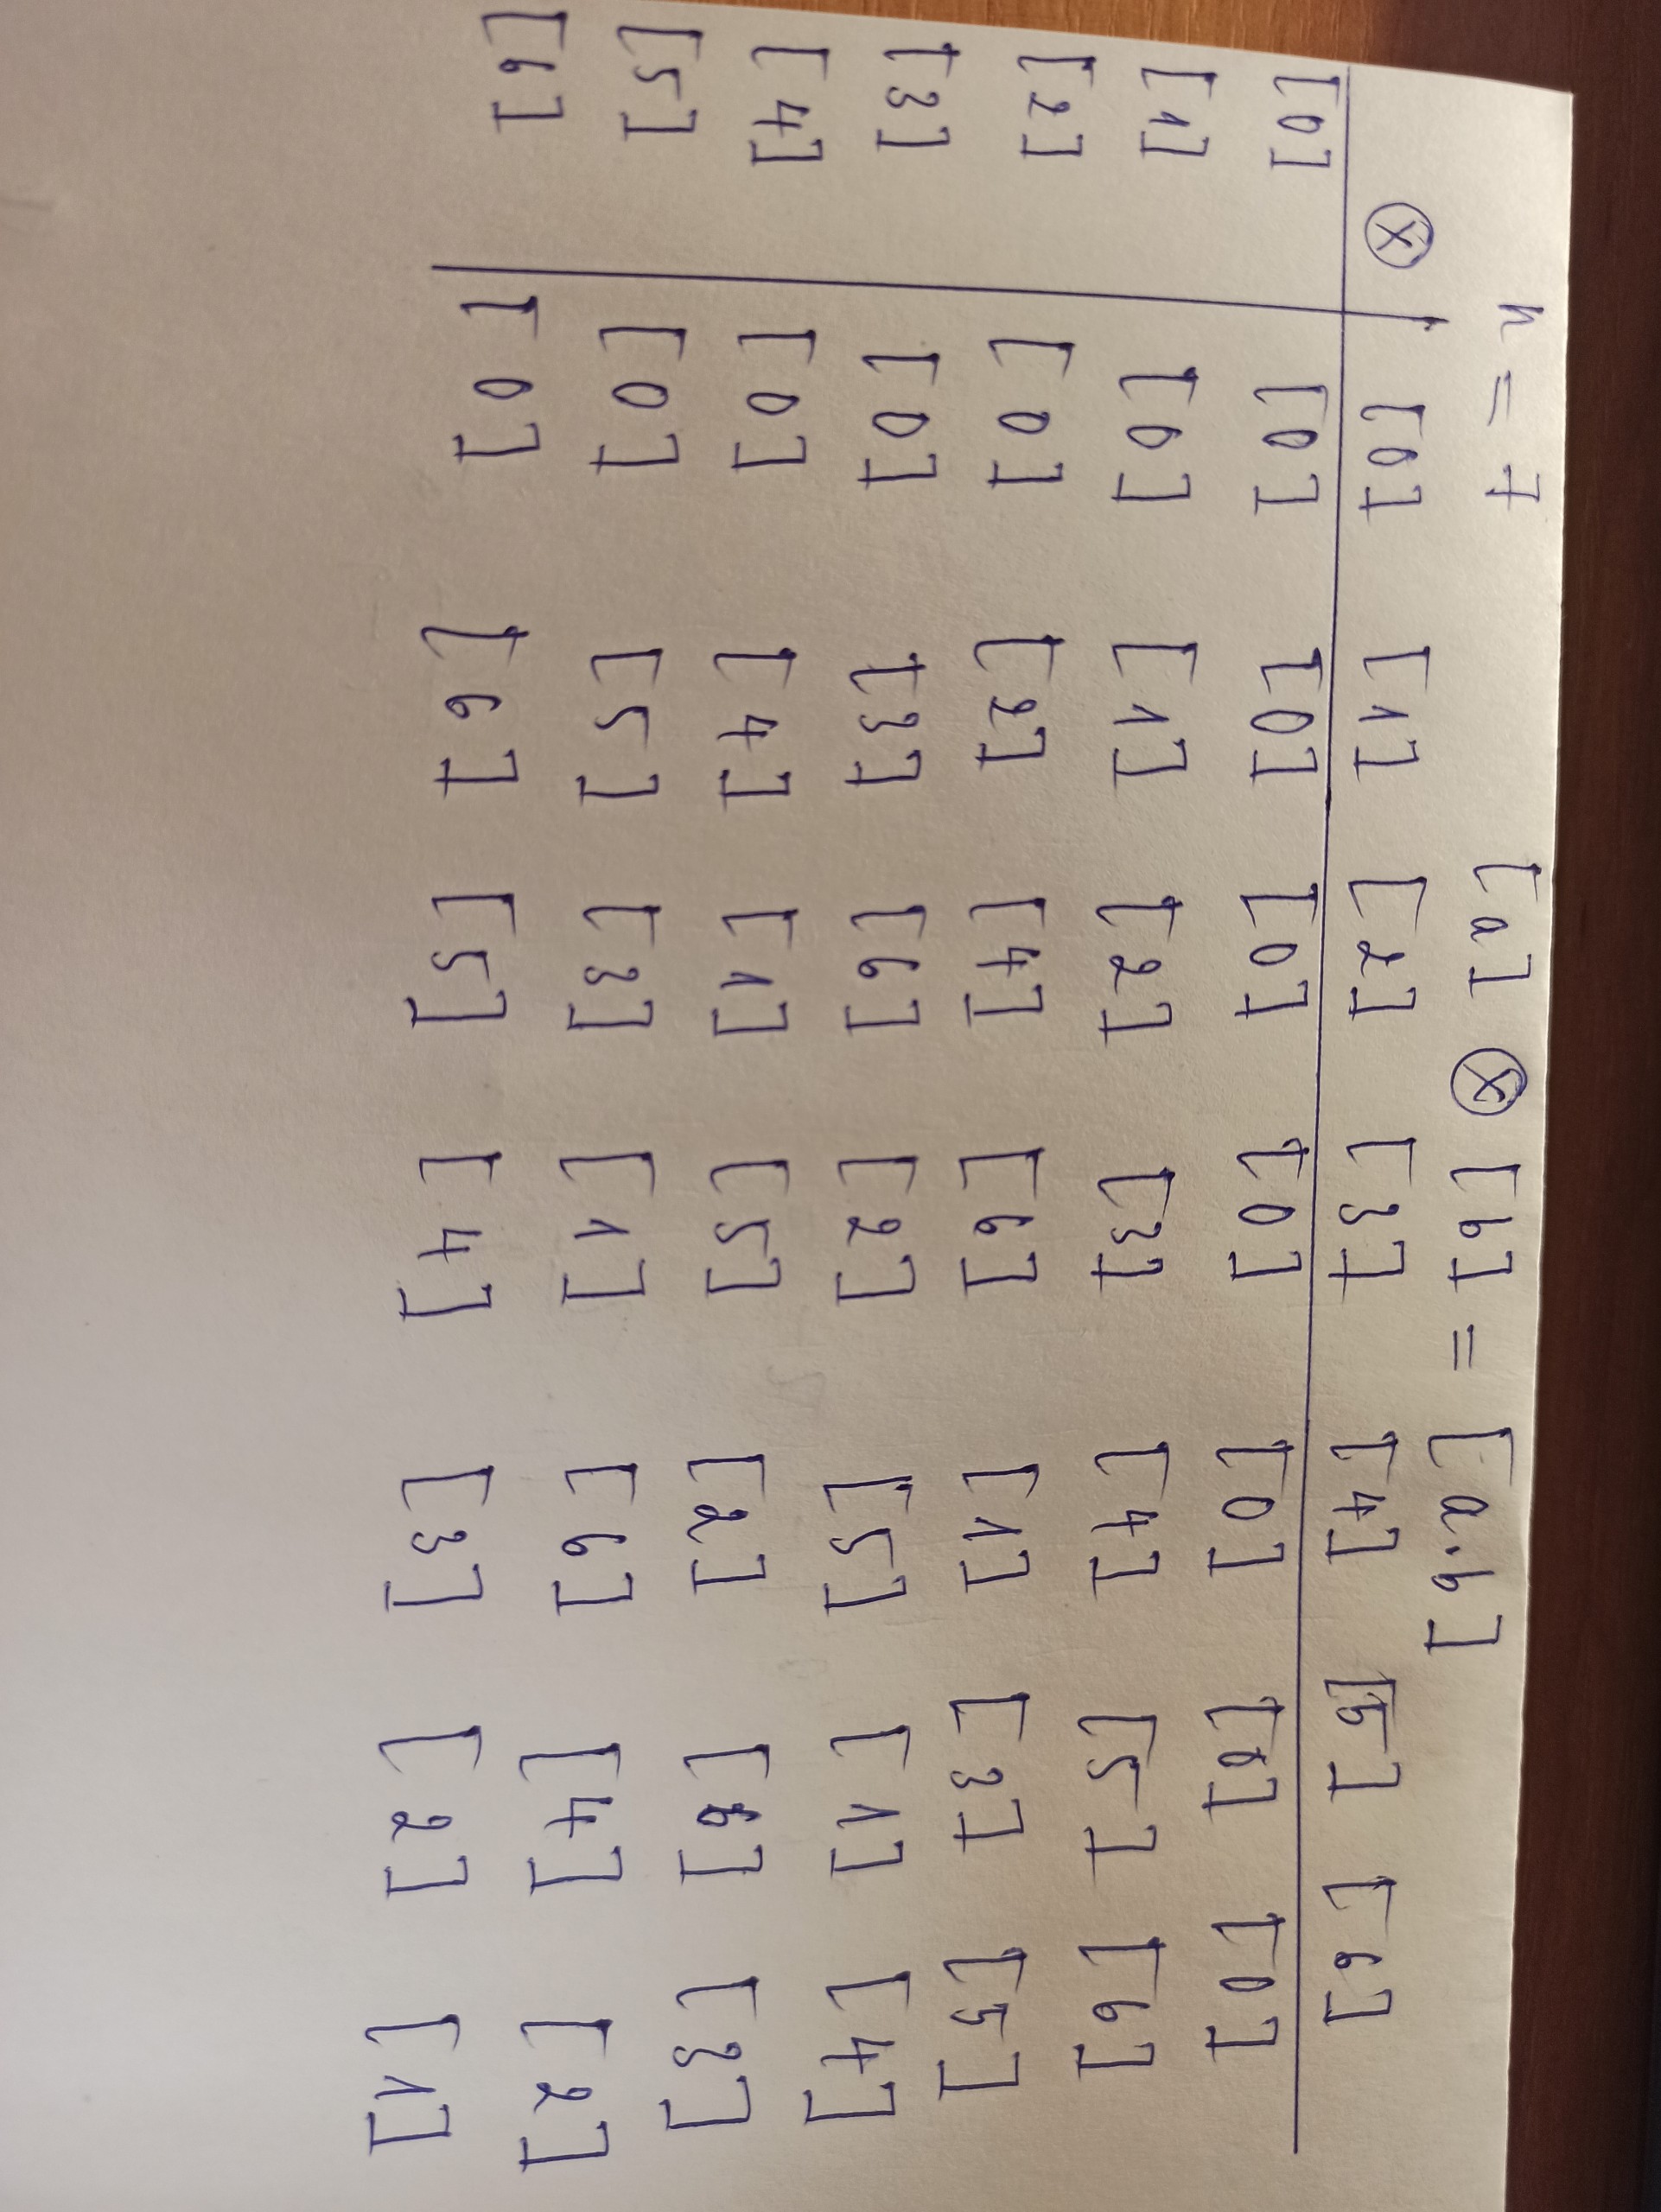 n = 7 [a] ⊗ [b] = [a·b]
⊗ [0] [1] [2] [3] [4] [5] [6]
[0] [0] [0] [0] [0] [0] [0] [0]
[1] [0] [1] [2] [3] [4] [5] [6]
[2] [0] [2] [4] [6] [1] [3] [5]
[3] [0] [3] [6] [2] [5] [1] [4]
[4] [0] [4] [1] [5] [2] [6] [3]
[5] [0] [5] [3] [1] [6] [4] [2]
[6] [0] [6] [5] [4] [3] [2] [1]